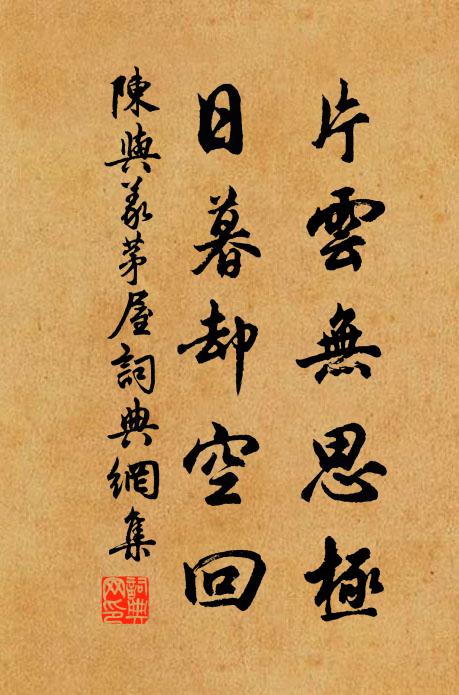 片雲無思極
日暮却空回
陳與義茅屋詞典網集
詞典
网印